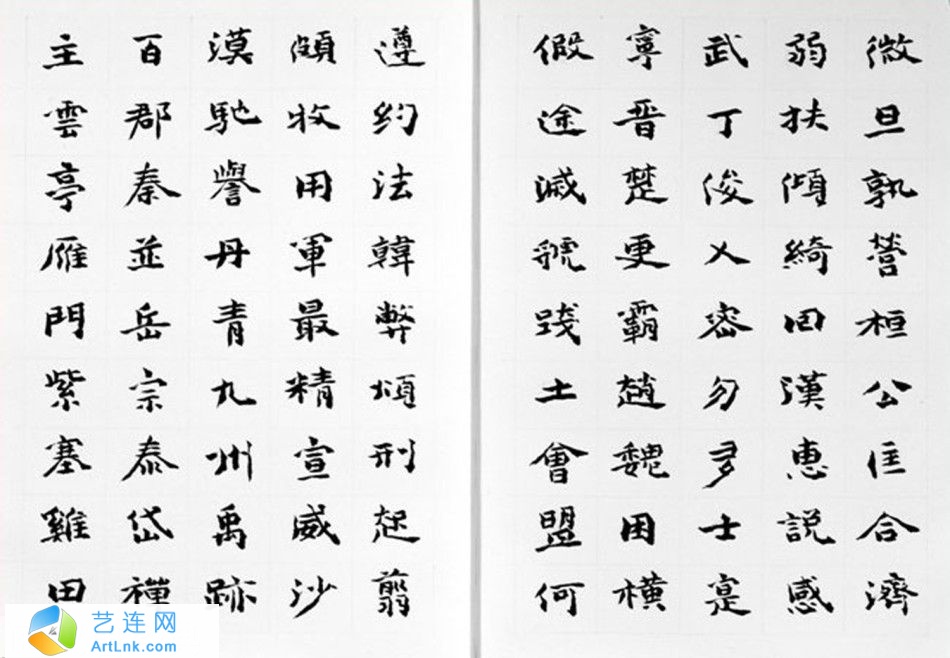 微旦孰營桓公匡合濟
弱扶傾綺囬漢惠説感
武丁俊乂密勿多士寔
寧晋楚更霸趙魏困横
假途滅虢踐土會盟何
遵約法韓弊煩刑起翦
頗牧用軍最精宣威沙
漠馳譽丹青九州禹跡
百郡秦並岳宗泰岱禪
主雲亭雁門紫塞雞田
艺连网
ArtLnk.com